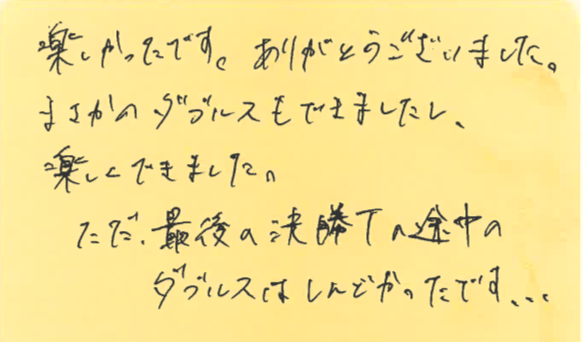 楽しかったです。ありがとうございました。
まさかのダブルスもできましたし、
楽しくできました。
ただ、最後の決勝Tの途中の
ダブルスはしんどかったです、、、